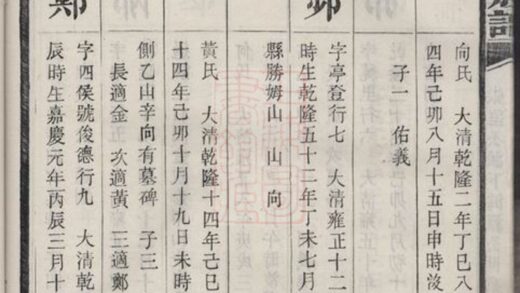 向氏　大清乾隆二年丁巳八
四年己卯八月十五日申時歿
子一　佑義
字亭登行七　大清雍正十二
時生乾隆五十二年丁未七月
縣勝姆山　山　向
黃氏　大清乾隆十四年己巳
十四年己卯十月十九日未時
側乙山辛向有墓碑　子三
長適金五　次適黃　三適鄭
鄭
字四侯號俊德行九　大清乾
辰時生嘉慶元年丙辰三月十